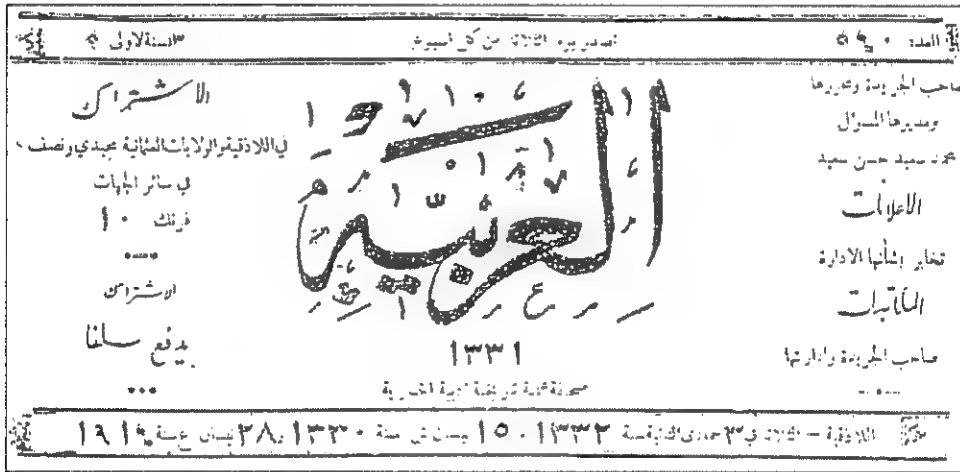 العدد
تصدر يوم الثلاثاء من كل اسبوع
السنة الاولى
صاحب الجريدة ومحررها
ومديرها المسؤل
محمد سعيد حسن سعيد
الاعلانات
تخابر بشأنها الادارة
المكاتبات
صاحب الجريدة وادارتها
العربية
١٣٣١
الاشتراك
في اللاذقية والولايات العثمانية مجيدي ونصف
في سائر الجهات
فرنك ١٠
الاشتراك
يدفع سلفا
اللاذقية – الثلاثاء في جمادى الثانية سنة ١٣٣٢ . ١٥ نيسان ش سنة ١٣٣٠ و ٢٨ نيسان غ سنة